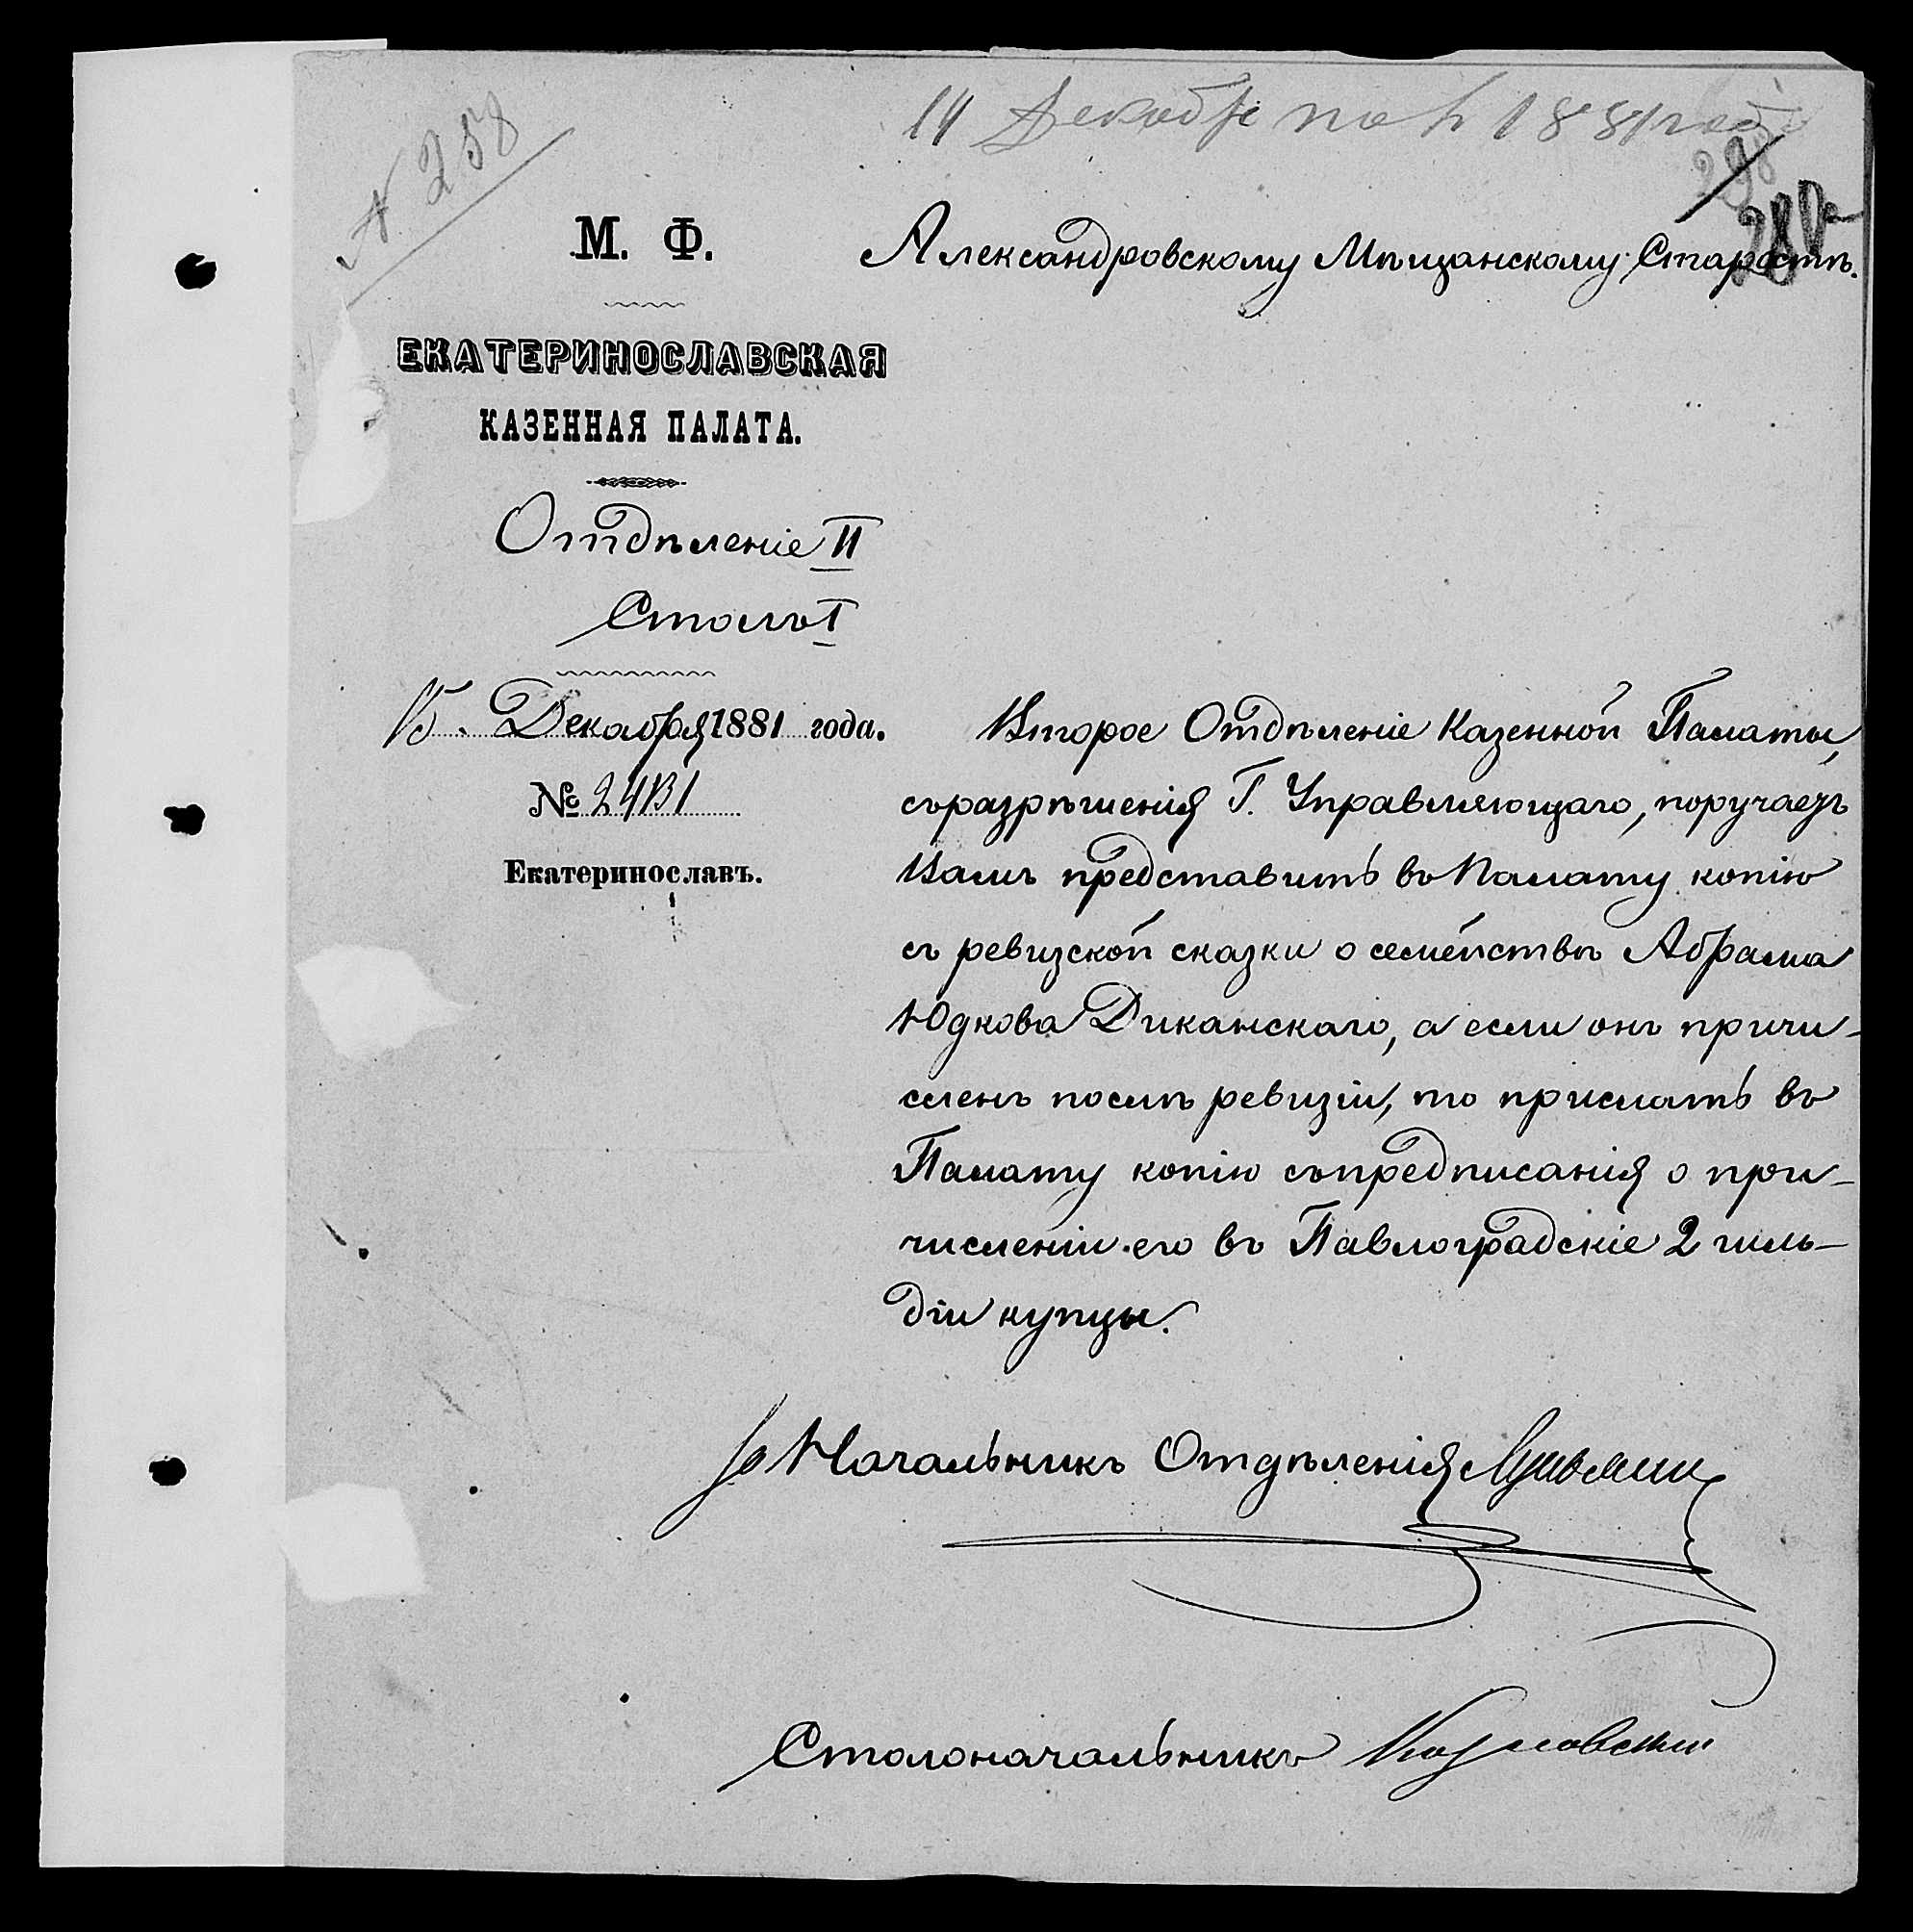 № 258
14 Декабр 1881 года
298
280
М. Ф.
Александровскому Мѣщанскому Старостѣ.
ЕКАТЕРИНОСЛАВСКАЯ
КАЗЕННАЯ ПАЛАТА.
Отдѣленіе II
Столъ I
Декабря 1881 года.
№
Екатеринославъ.
Второе Отдѣленіе Казенной Палаты,
съ разрѣшенія Г. Управляющаго, поручаетъ
Вамъ представить въ Палату копію
съ ревизской сказки о семействѣ Абрама
Юдкова Диканскаго, а если онъ причи-
сленъ послѣ ревизіи, то прислать въ
Палату копію съ предписанія о при-
численіи его въ Павлоградскіе 2 гиль-
діи купцы.
Начальникъ Отдѣленія
Столоначальникъ